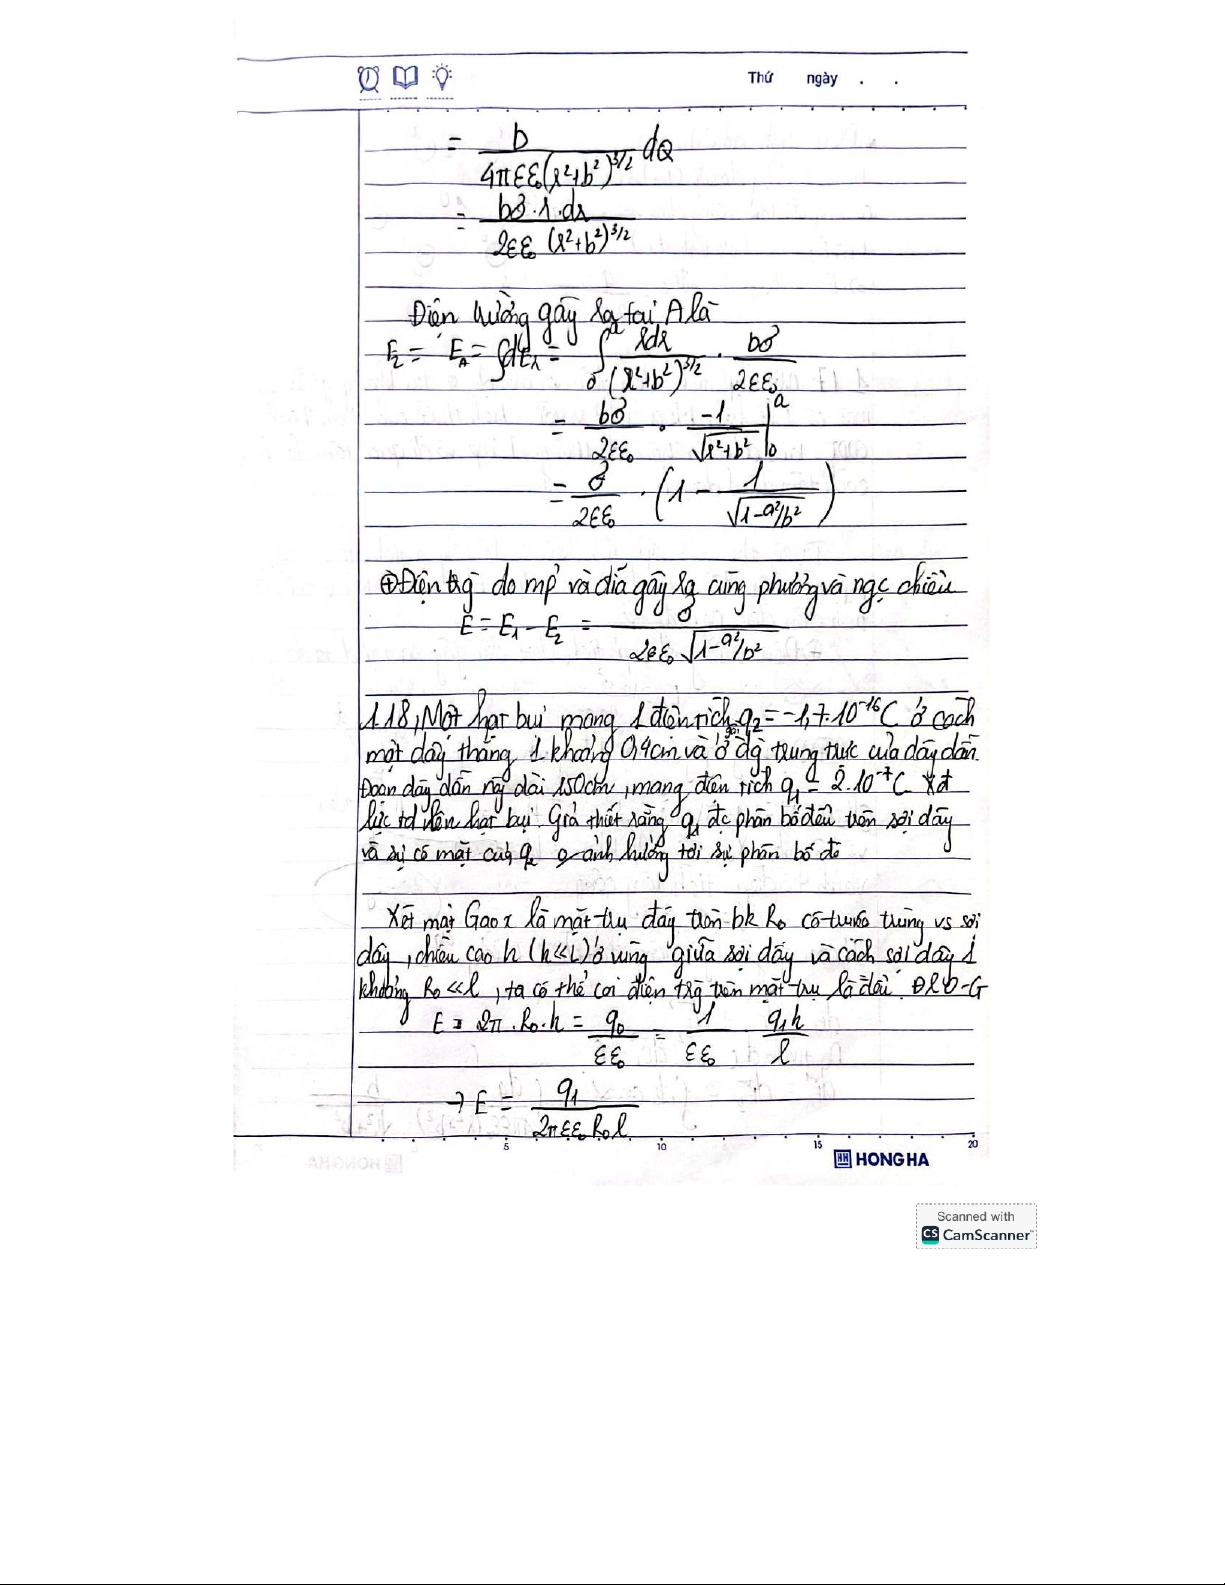 Thứ ngày . .
= b / 4πεε₀(r²+b²)^3/2 dQ
= bσ.r.dr / 2εε₀ (r²+b²)^3/2
Điện trường gây ra tại A là
E₂ = E_A = ∫dE_r = ∫₀^a rdr / (r²+b²)^3/2 . bσ / 2εε₀
= bσ / 2εε₀ . -1 / √r²+b² |₀^a
= σ / 2εε₀ . (1 - 1 / √1-a²/b²)
⊕ Điện trg do mp và đĩa gây ra cùng phương và ngc chiều
E = E₁ - E₂ = σ / 2εε₀ √1-a²/b²
1.18, Một hạt bụi mang 1 điện tích q₂ = -1,7.10⁻¹⁶C ở cách
một dây thẳng 1 khoảng 0,4cm và ở đg trung trực của dây dẫn.
Đoạn dây dẫn này dài 150cm, mang điện tích q₁ = 2.10⁻⁷C. Xđ
lực td lên hạt bụi. Giả thiết rằng q₁ đc phân bố đều trên sợi dây
và sự có mặt của q₂ ảnh hưởng tới sự phân bố đó
Xét mặt Gao x là mặt trụ đáy tròn bk R₀ có trục trùng vs sợi
dây, chiều cao h (h≪l) ở vùng giữa sợi dây và cách sợi dây 1
khoảng R₀ ≪ l, ta có thể coi điện trg trên mặt trụ là đều. ĐL O-G
E . 2π . R₀ . h = q₀ / εε₀ = 1 / εε₀ q₁h / l
→ E = q₁ / 2πεε₀R₀l
5 10 15 20
HH HONG HA
Scanned with
CS CamScanner